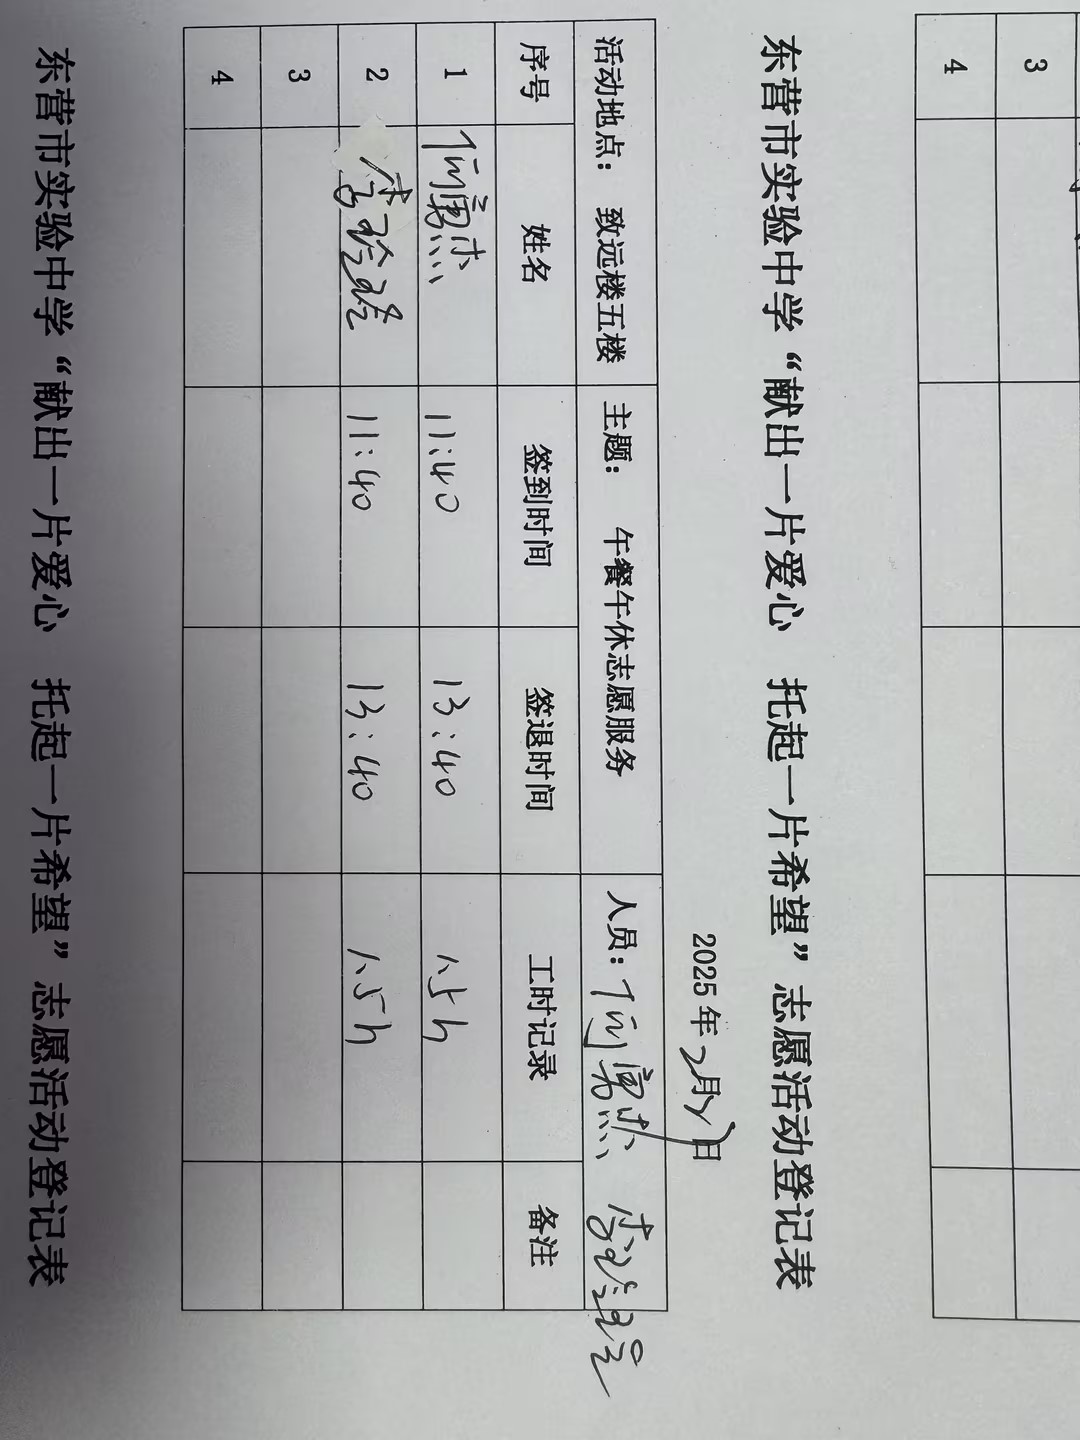 3
4
东营市实验中学“献出一片爱心 托起一片希望”志愿活动登记表
2025年2月 日
活动地点： 致远楼五楼 主题： 午餐午休志愿服务 人员：
序号 姓名 签到时间 签退时间 工时记录 备注
1 11:40 13:40 1.5h
2 11:40 13:40 1.5h
3
4
东营市实验中学“献出一片爱心 托起一片希望”志愿活动登记表